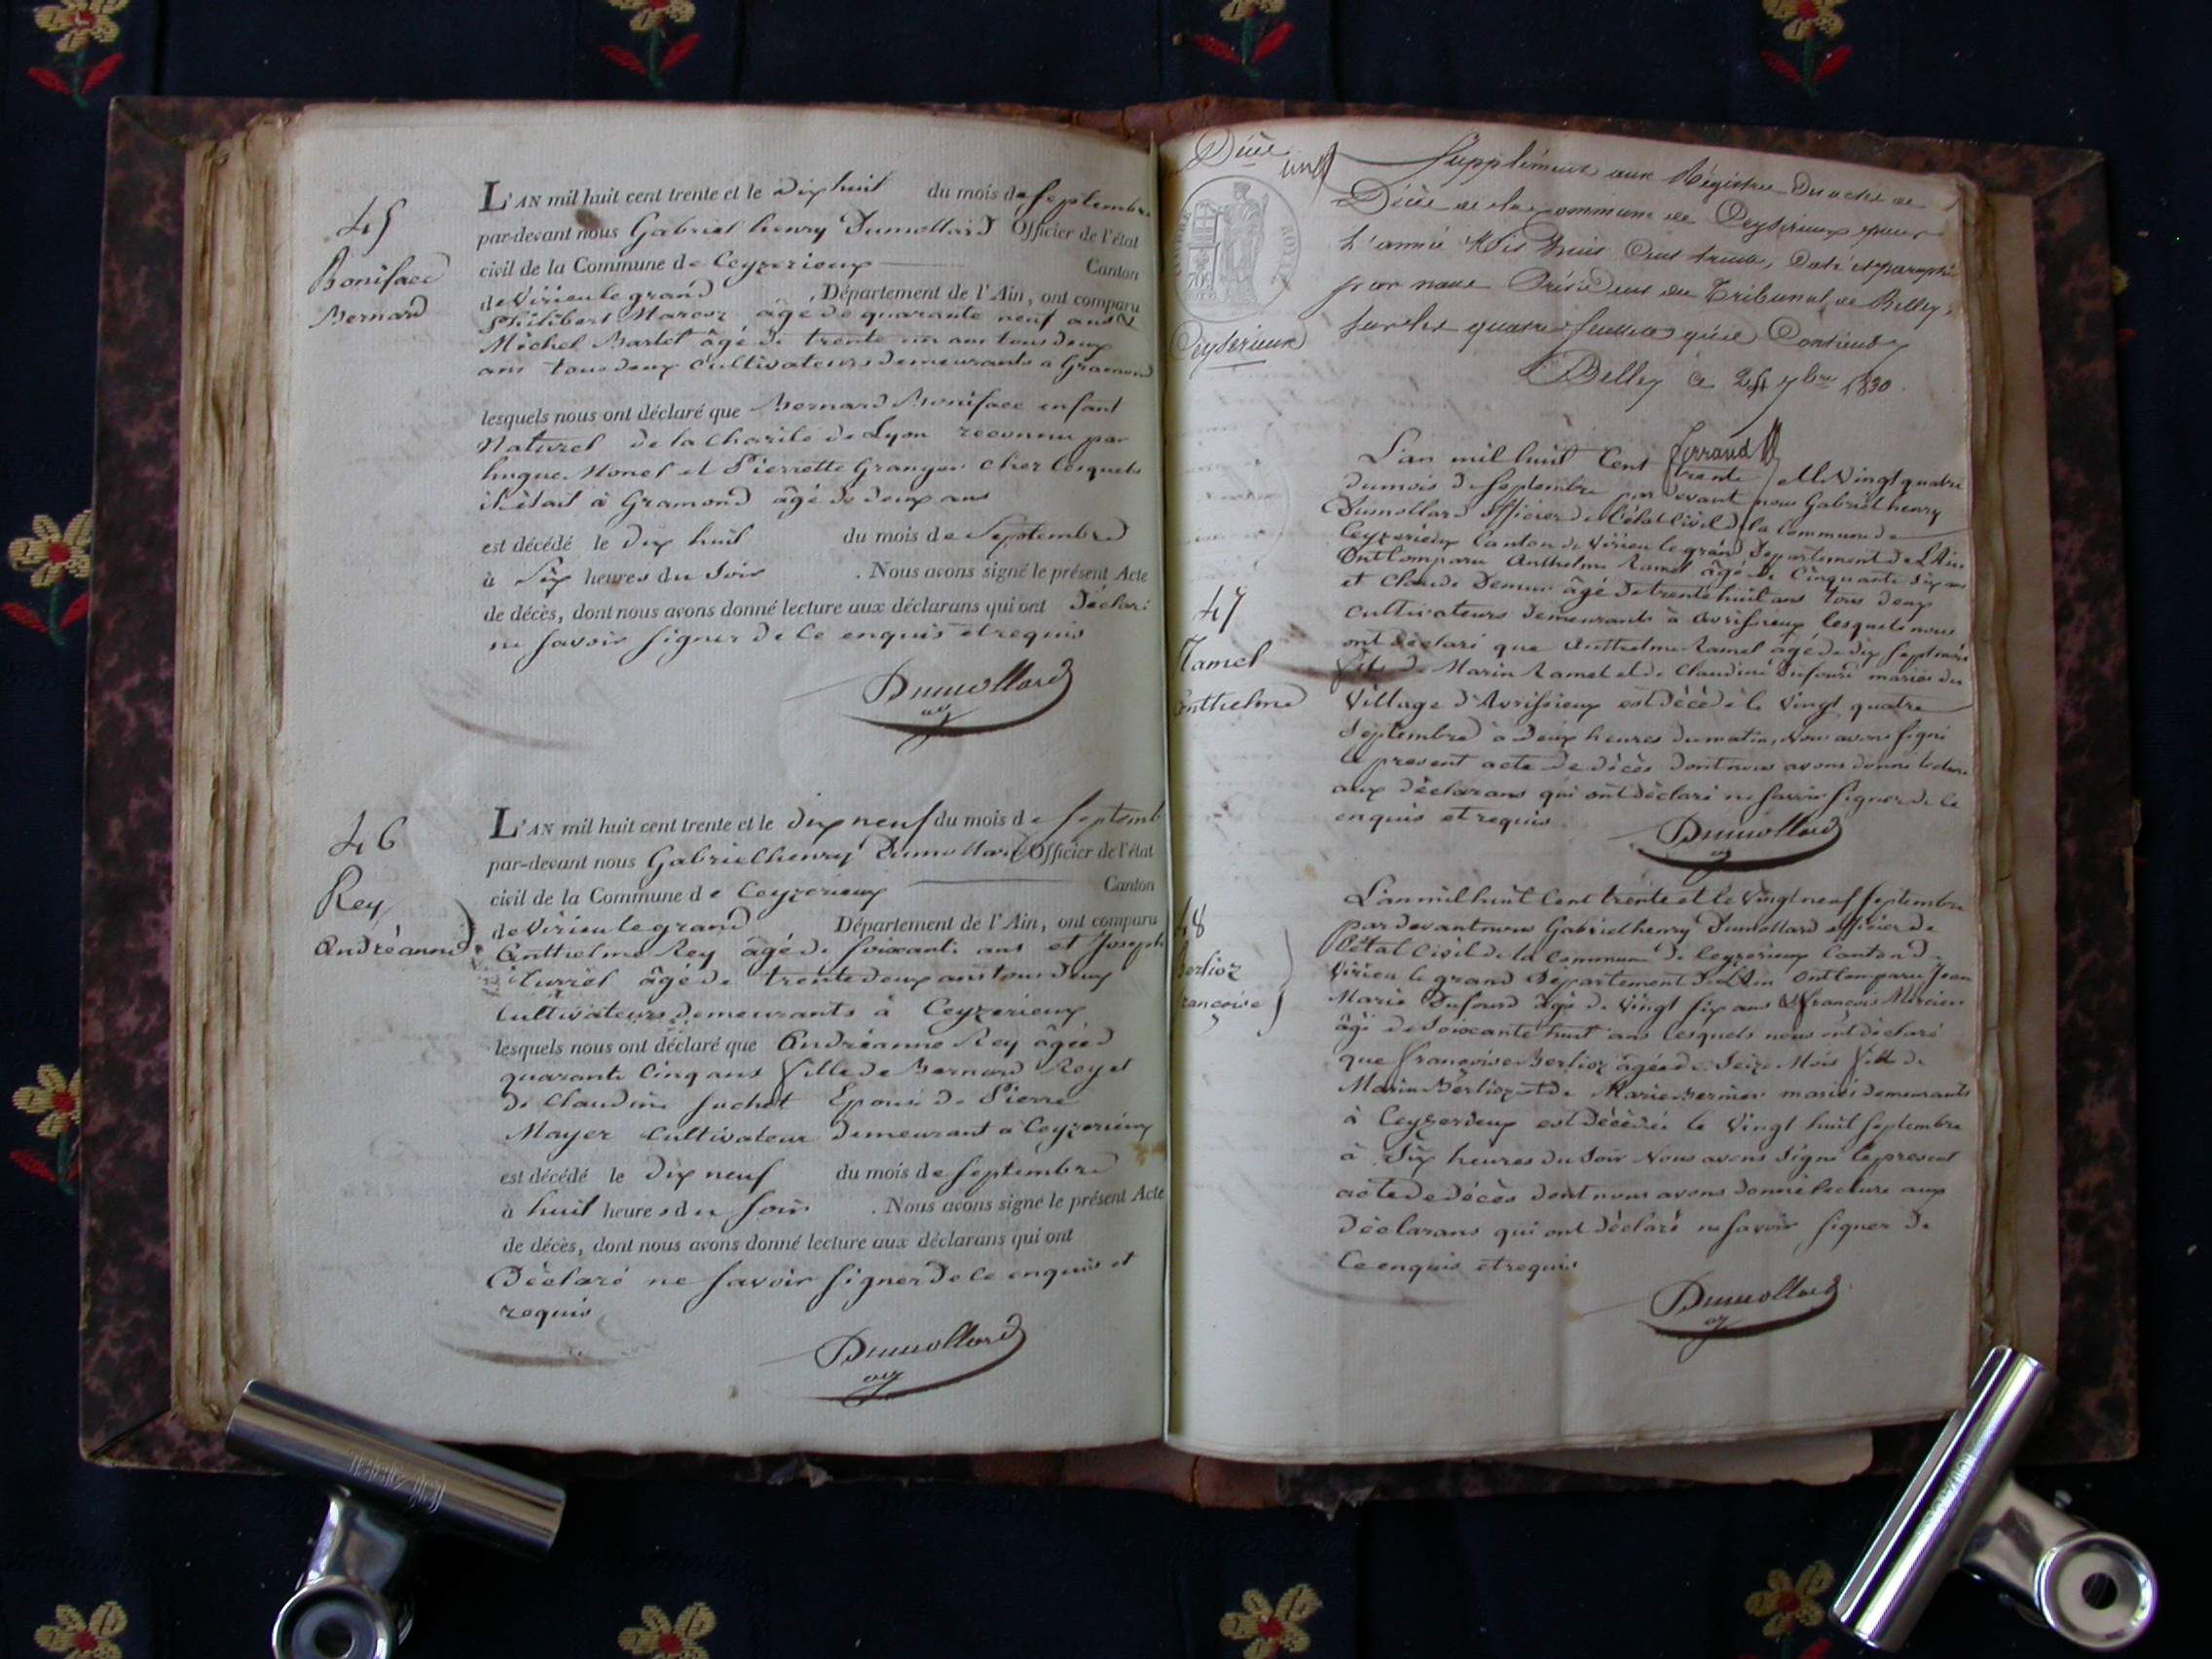 45
Boniface
Bernard
L'AN mil huit cent trente et le Dix huit du mois de Septembre
par-devant nous Gabriel henry Dumollard Officier de l'état
civil de la Commune de Ceyzerieux Canton
de Virieu le grand, Département de l'Ain, ont comparu
Philibert Marcoz âgé de quarante neuf ans &
Michel Martel âgé de trente un ans tous deux
ans tous deux Cultivateurs demeurants a Gramond
lesquels nous ont déclaré que Bernard Boniface enfant
Naturel de la Charité de Lyon reconnu par
hugue Monet et Pierrette Granger Chez lesquels
il était à Gramond âgé de deux ans
est décédé le Dix huit du mois de Septembre
à Six heures du Soir. Nous avons signé le présent Acte
de décès, dont nous avons donné lecture aux déclarans qui ont Déclaré
ne Savoir Signer de Ce enquis et requis
Dumollard
46
Rey
Andréanne
L'AN mil huit cent trente et le dix neuf du mois de Septemb
par-devant nous Gabriel henry Dumollard Officier de l'état
civil de la Commune de Ceyzerieux Canton
de Virieu le grand Département de l'Ain, ont comparu
Anthelme Rey âgé de Soixante ans et Joseph
âgé de trente deux ans tous deux
Cultivateurs demeurants à Ceyzerieux
lesquels nous ont déclaré que Andréanne Rey âgée d
quarante Cinq ans fille de Bernard Rey et
de Claudine Suchet Epouse de Pierre
Mayer Cultivateur demeurant a Ceyzerieux
est décédé le Dix neuf du mois de Septembre
à huit heures du Soir. Nous avons signé le présent Acte
de décès, dont nous avons donné lecture aux déclarans qui ont
Déclaré ne Savoir Signer de Ce enquis et
requis
Dumollard
Décès
Ceyserieux
Supplément aux Régistre des actes de
Décès de la commune de Ceyserieux pour
l'année Mil Huit Cent trente, Coté et paraphé
par nous Président du Tribunal de Belley,
sur les quatre feuillets qu'il Contient
Belley ce 24 7bre 1830.
Ferrand
47
Ramel
Anthelme
L'an mil huit Cent trente et le Vingt quatre
du mois de Septembre par devant nous Gabriel henry
Dumollard officier de l'état Civil de la Commune de
Ceyzerieux Canton de Virieu le grand Département de L'Ain
Ont Comparu Anthelme Ramel âgé de Cinquante Six ans
et Claude âgé de trente huit ans tous deux
Cultivateurs demeurants à Avrissieux lesquels nous
ont déclaré que Anthelme Ramel âgé de dix Sept mois
fils de Marin Ramel et de Claudine Dufour mariés du
Village d'Avrissieux est Décédé le Vingt quatre
Septembre à Deux heures du matin, Nous avons Signé
le present acte de décès dont nous avons donné lecture
aux déclarans qui ont déclaré ne Savoir Signer de Ce
enquis et requis
Dumollard
48
Berlioz
françoise
L'an mil huit Cent trente et le Vingt neuf Septembre
par devant nous Gabriel henry Dumollard officier de
l'état Civil de la Commune de Ceyzerieux Canton de
Virieu le grand Département de L'Ain Ont Comparu Jean
Marie Dufour âgé de Vingt Six ans & françois Mercier
âgé de Soixante huit ans lesquels nous ont déclaré
que françoise Berlioz âgée de Seize Mois fille de
Marin Berlioz et de Marie mariés demeurants
à Ceyzerieux est Décédée le Vingt huit Septembre
à Six heures du Soir Nous avons Signé le present
acte de décès dont nous avons donné lecture aux
déclarans qui ont déclaré ne Savoir Signer de
Ce enquis et requis
Dumollard